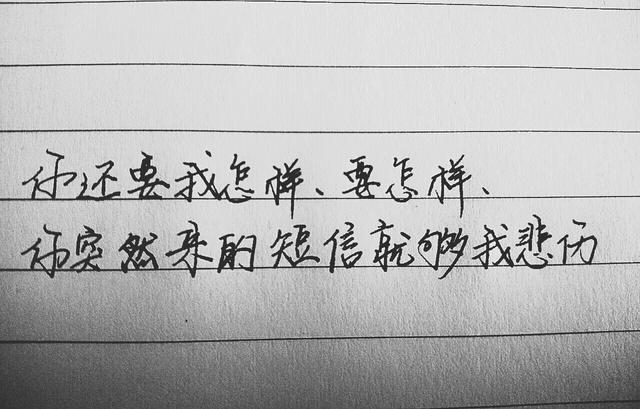 你还要我怎样、要怎样、
你突然来的短信就够我悲伤